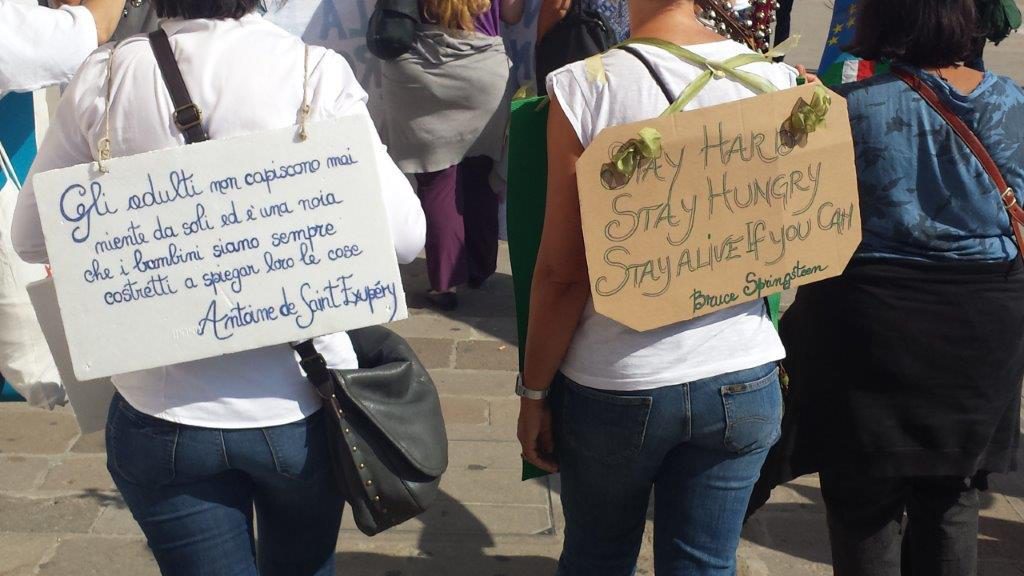 Gli adulti non capiscono mai
niente da soli ed è una noia
che i bambini siano sempre
costretti a spiegar loro le cose
Antoine de Saint Exupéry
STAY HARD
STAY HUNGRY
STAY ALIVE IF YOU CAN
Bruce Springsteen